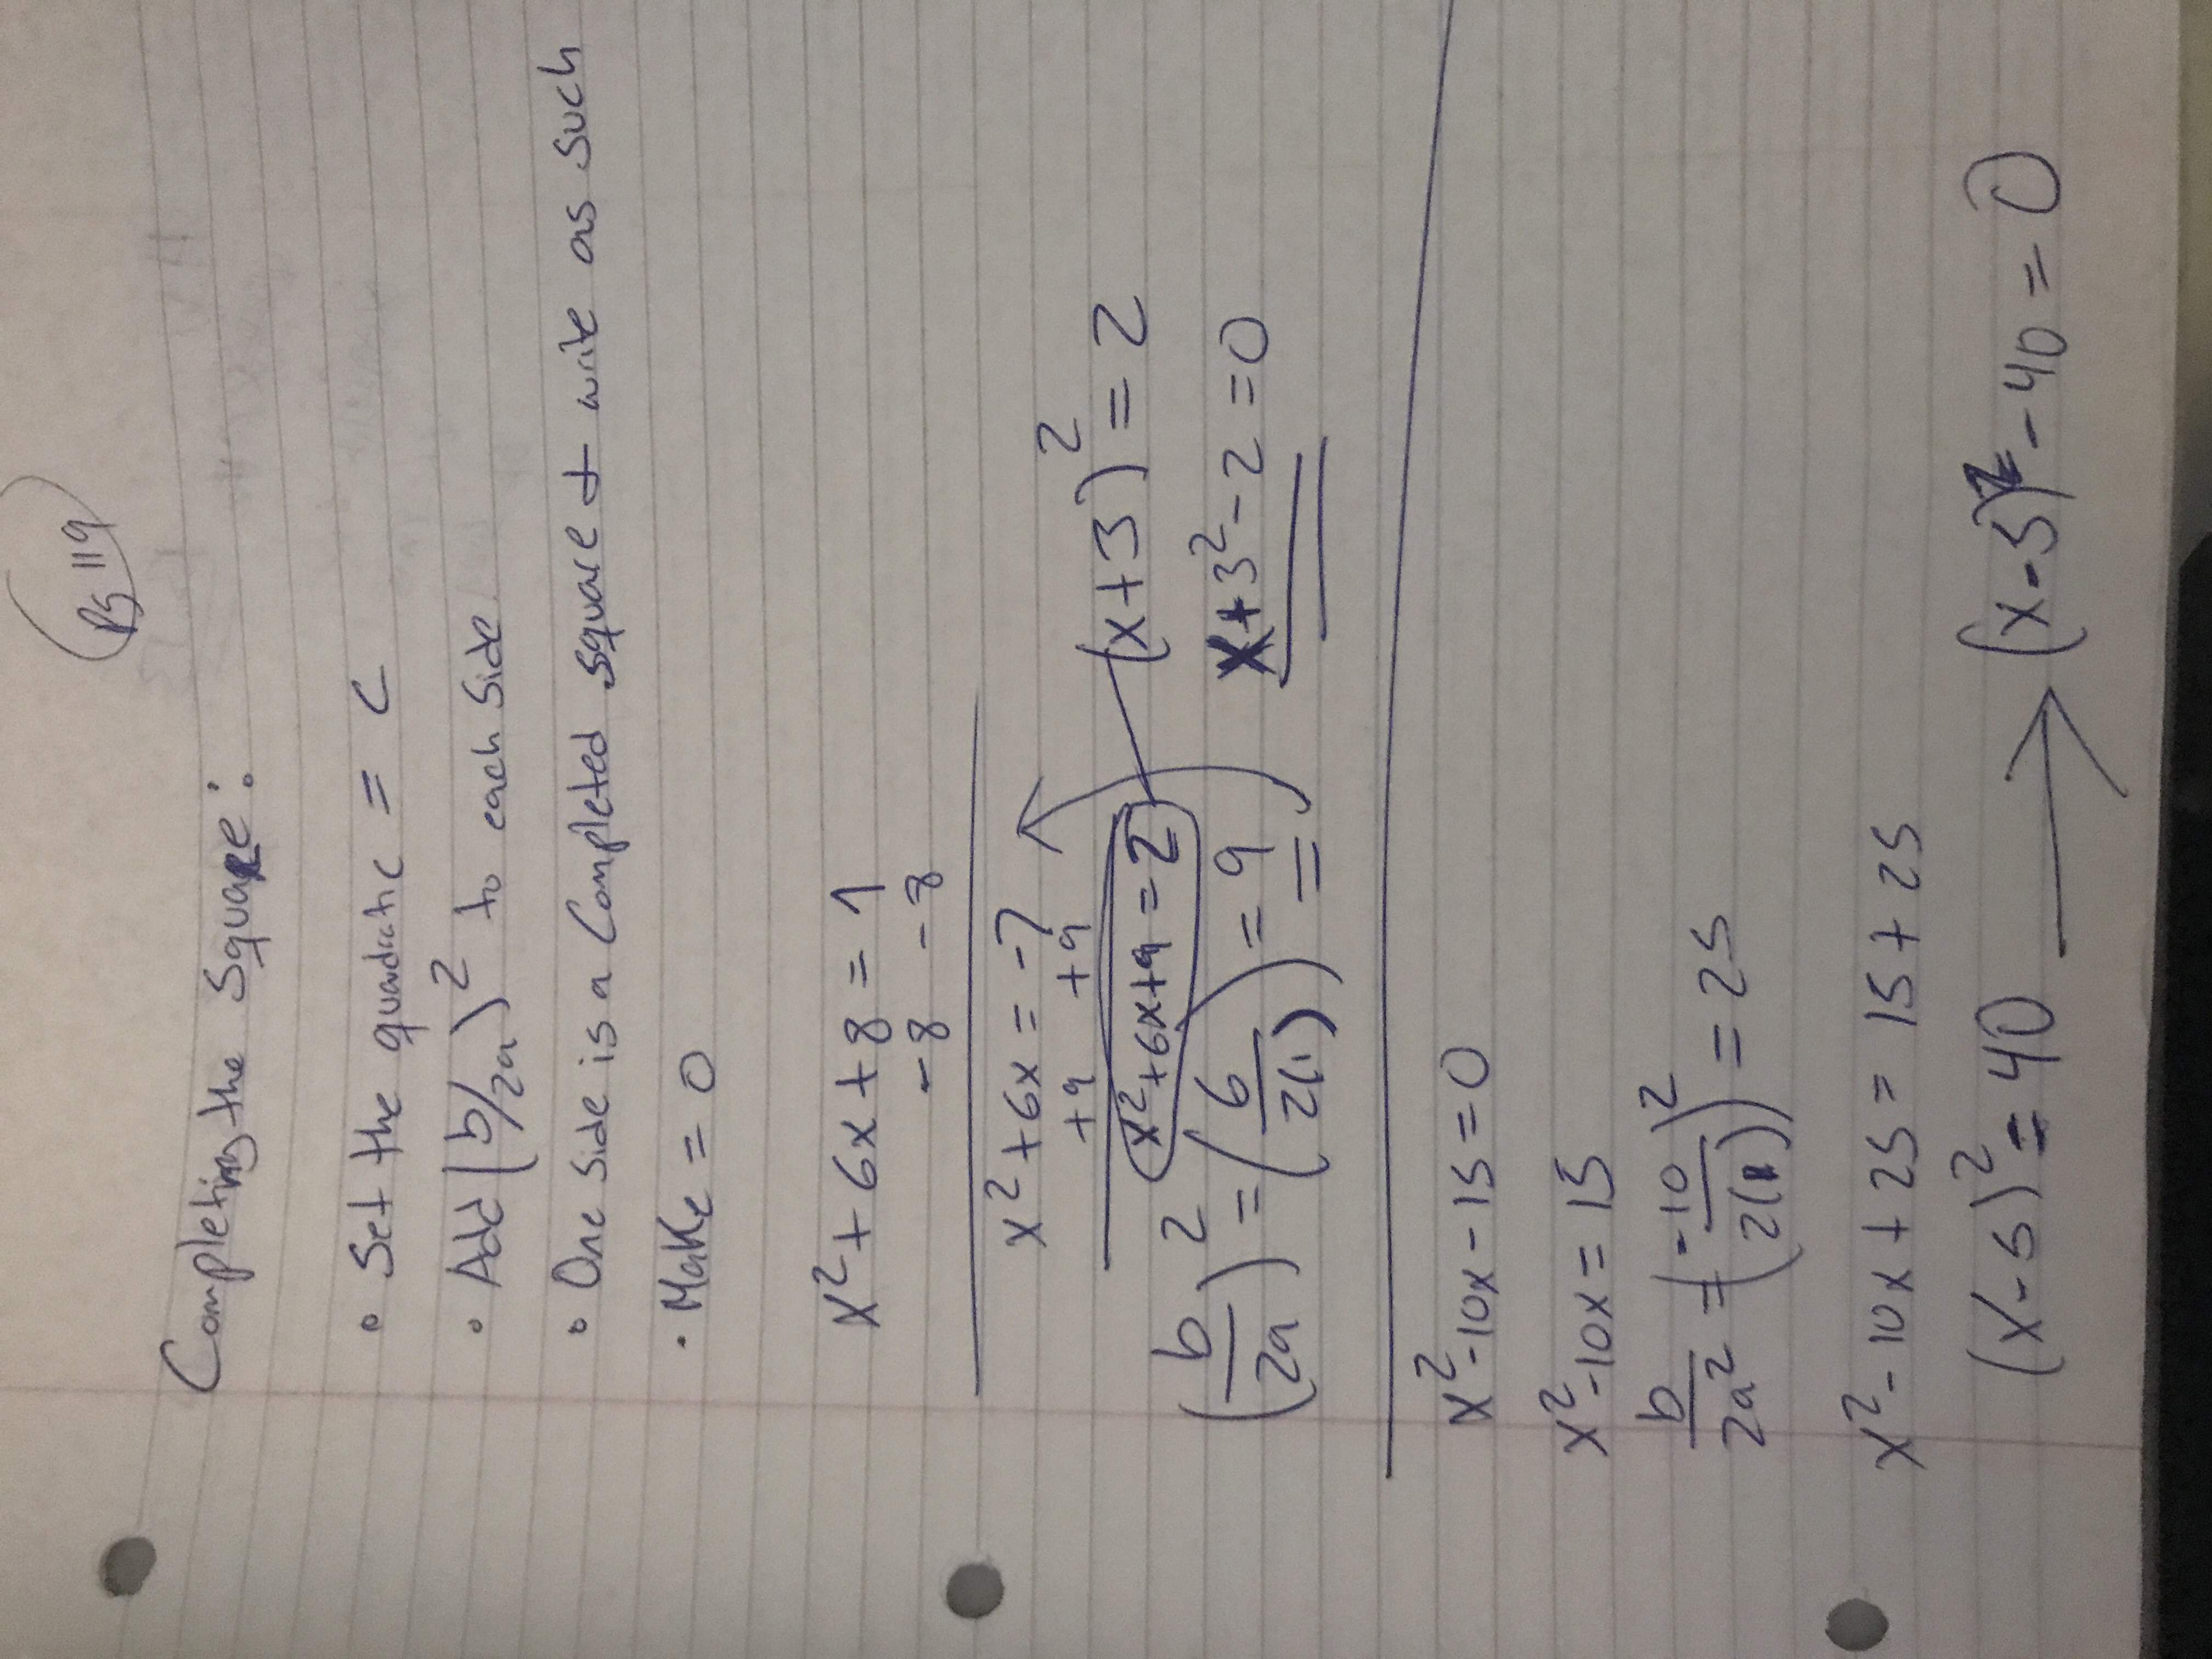 Pg 119
Completing the Square:
• Set the quadratic = C
• Add (b/2a)² to each side
• One side is a Completed square + write as such
• Make = 0
x² + 6x + 8 = 1
-8 -8
x² + 6x = -7
+9 +9
x² + 6x + 9 = 2
(x+3)² = 2
(b/2a)² = (6/2(1)) = 9
x+3² - 2 = 0
x² - 10x - 15 = 0
x² - 10x = 15
b/2a² = (-10/2(1))² = 25
x² - 10x + 25 = 15 + 25
(x - 5)² = 40 → (x - 5)² - 40 = 0